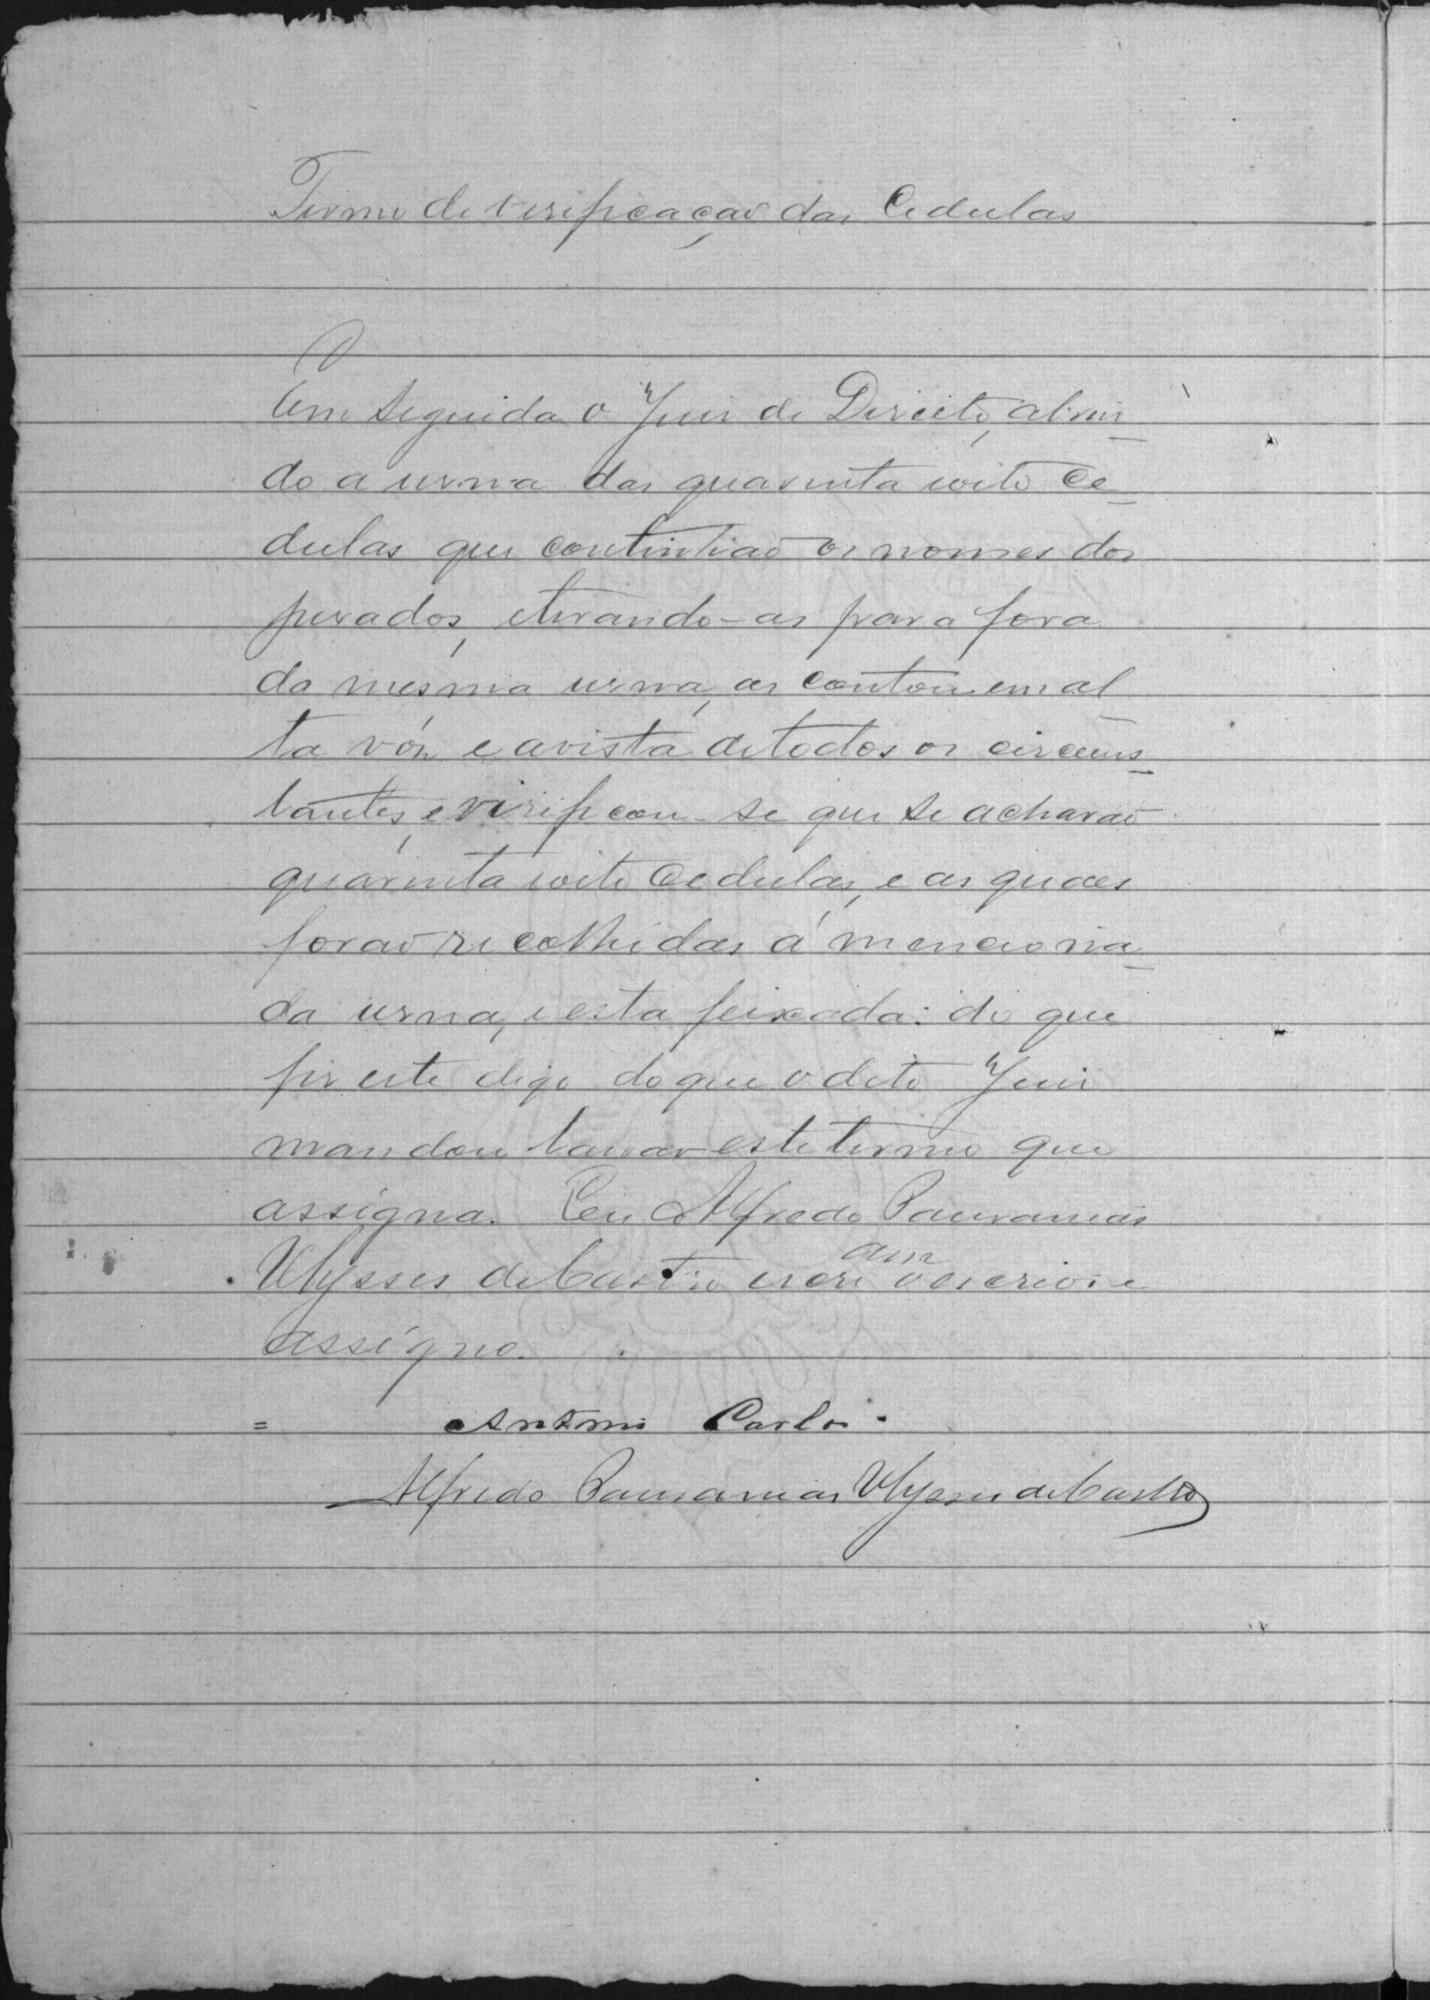 Termo de verificação das Cedulas
Em seguida o Juiz de Direito, abrin-
do a urna das quarenta e oito Ce-
dulas que continhão os nomes dos
jurados, e tirando-as para fora
da mesma urna, as contou em al-
ta vóz e a vista de todos os circuns-
tantes, e verificou-se que se acharão
quarenta e oito Cedulas, e as quaes
forão recolhidas á menciona-
da urna, e esta feixada: do que
fiz este digo do que o dito Juiz
mandou lavrar este termo que
assigna. Eu Alfredo Pausanias
Ulysses de Castro escrivam o escrevi e
assigno.
= Antonio Carlos.
Alfredo Pausanias Ulysses de Castro